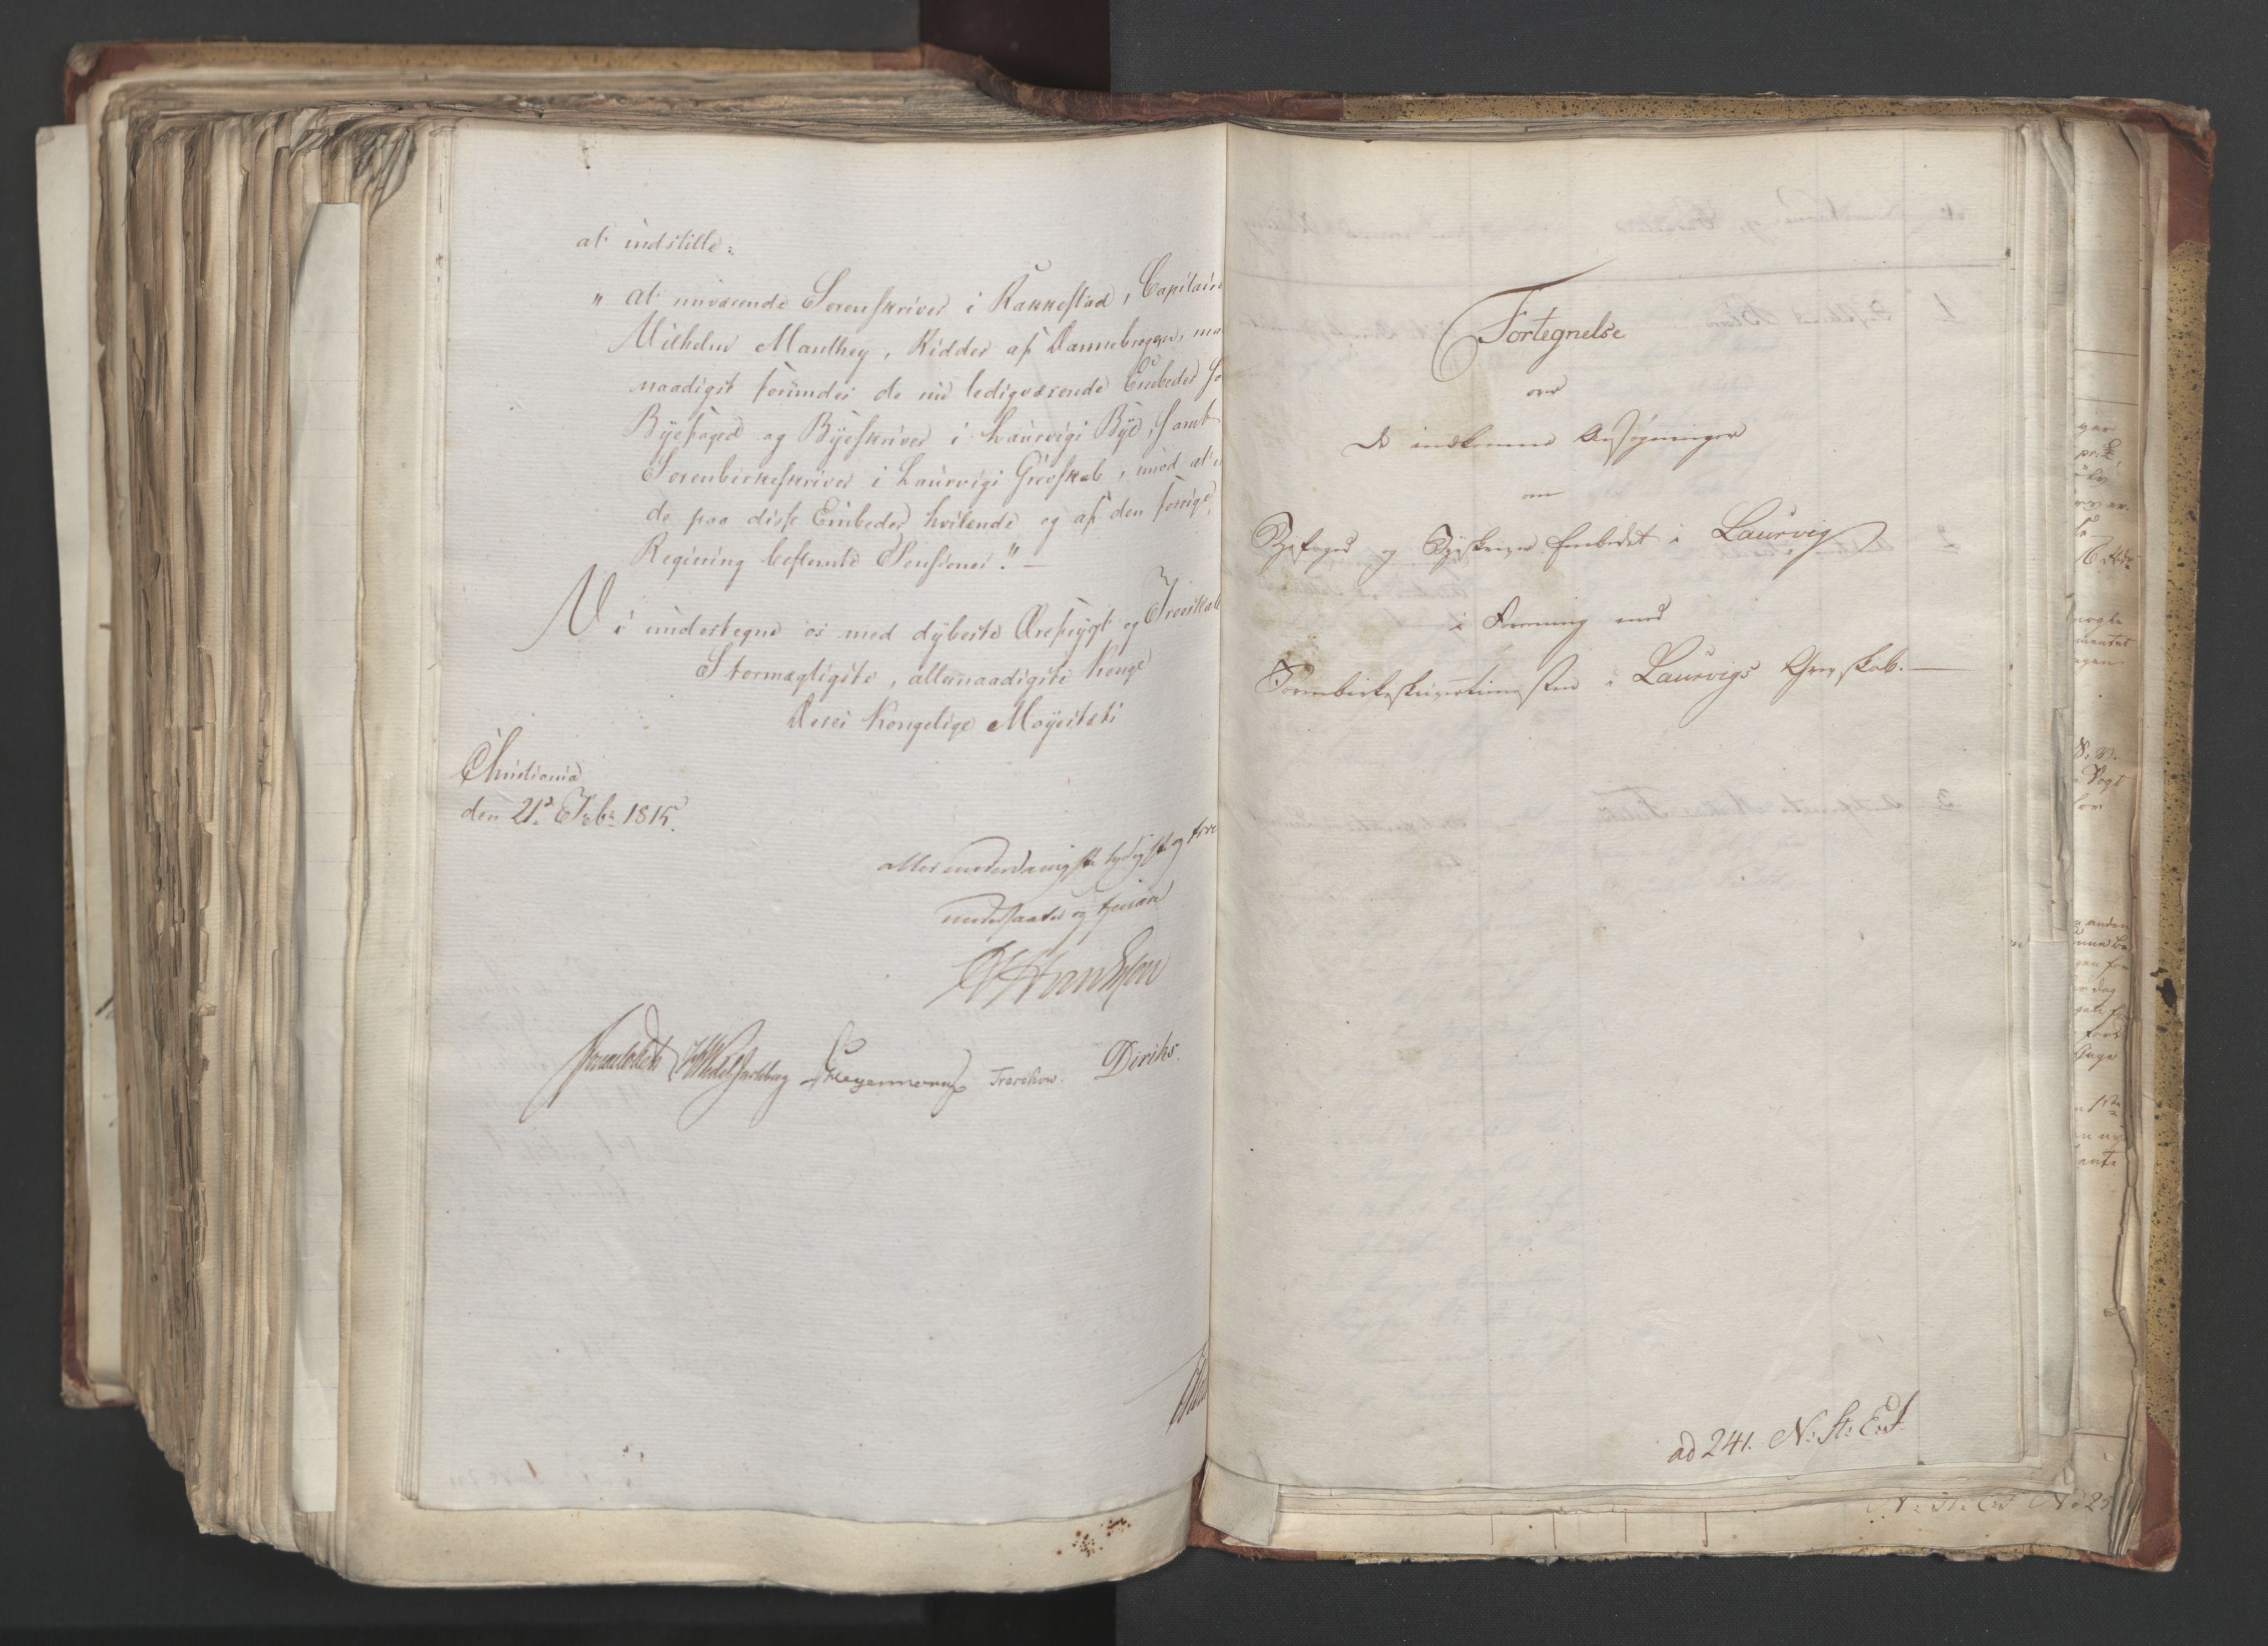 at indstille:
" at nuværende Sorenskriver i Rakkestad, Capitain
Wilhelm Manthey, Ridder af Dannebrogen, maa
naadigst forundes de nu ledigværende Embeder so
Byefoged og Byeskriver i Laurvigs Bye, samt
Sorenbirkeskriver i Laurvigs Grevskab, imod at u
de paa disse Embeder hvilende og af den forrige
Regiering bestemte Pensioner." —
Vi undertegne os med dybeste Ærefrygt og Troeskab
Stormægtigste, allernaadigste Konge
Deres Kongelige Mayestæts
Christiania
den 21d Febr: 1815.
allerunderdanigste lydigste og troe
undersaatter og tjenere
Sommerhielm Wedel Jarlsberg Hegermann Treschow. Diriks.
Fortegnelse
over
de indkomne Ansøgninger
om
Byefoged og Byeskriver Embedet i Laurvig
i Forening med
Sorenbirkeskrivertienesten i Laurvigs Grevskab. —
ad 241. N: St: E: J.